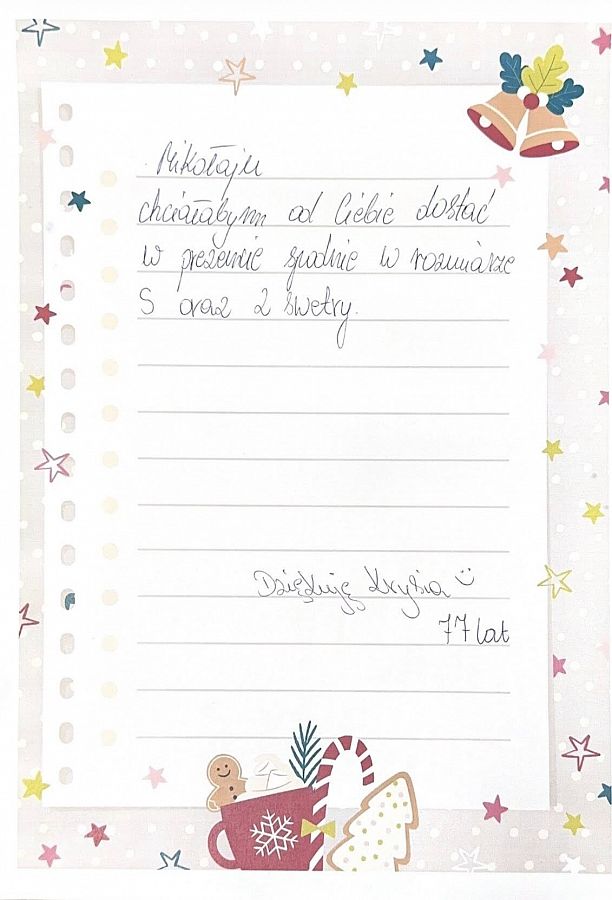 Mikołaju
chciałabym od Ciebie dostać
w prezencie spodnie w rozmiarze
S oraz 2 swetry.
Dziękuję Krysia
77 lat